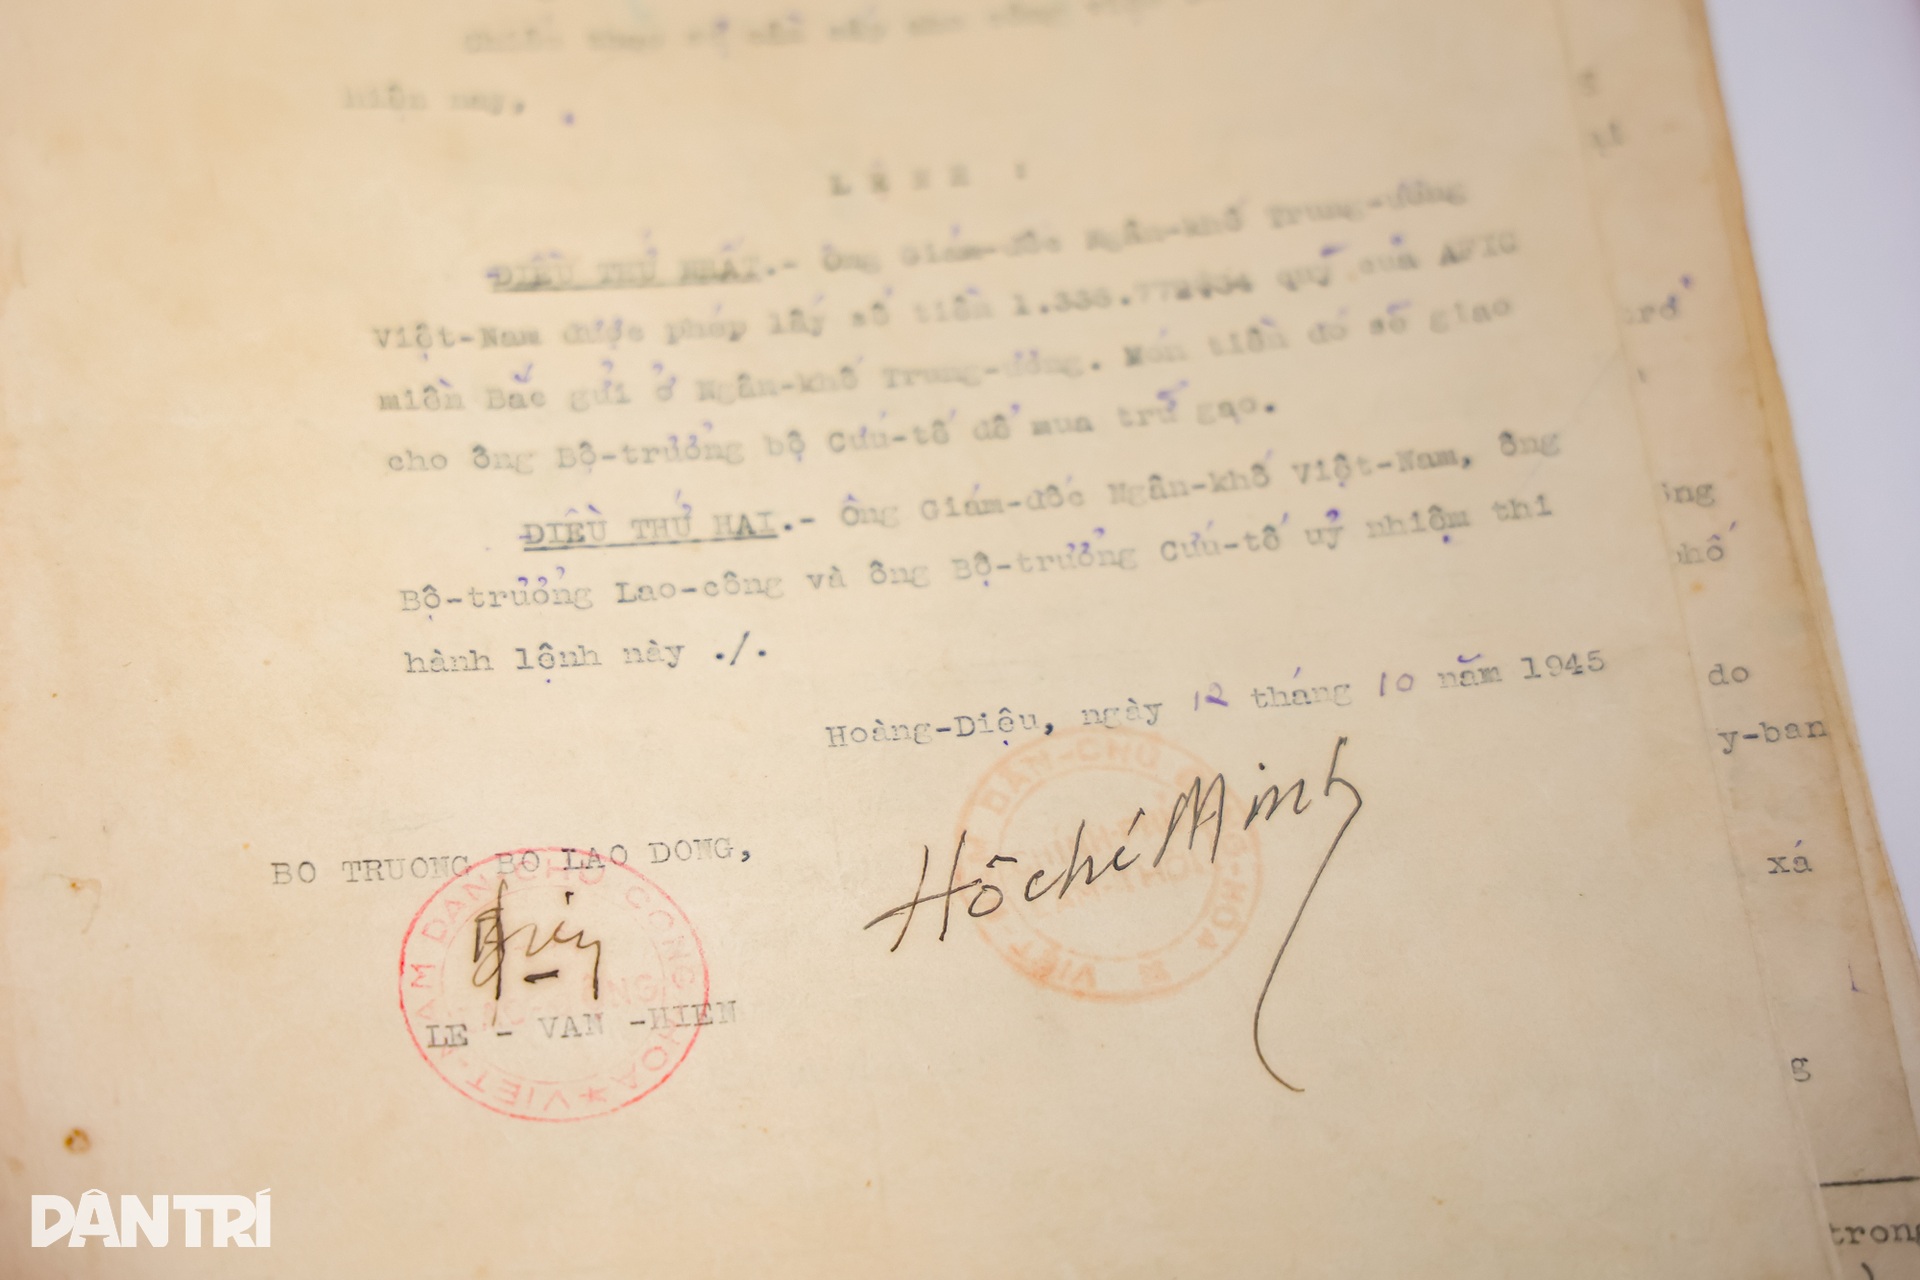 Chiểu theo sự cần cấp cho công việc
hiện nay,
LỆNH :
ĐIỀU THỨ NHẤT.- Ông Giám-đốc Ngân-khố Trung-ương
Việt-Nam được phép lấy số tiền quỹ của AFIC
miền Bắc gửi ở Ngân-khố Trung-ương. Món tiền đó sẽ giao
cho ông Bộ-trưởng bộ Cứu-tế để mua trữ gạo.
ĐIỀU THỨ HAI.- Ông Giám-đốc Ngân-khố Việt-Nam, ông
Bộ-trưởng Lao-công và ông Bộ-trưởng Cứu-tế uỷ nhiệm thi
hành lệnh này ./.
Hoàng-Diệu, ngày 12 tháng 10 năm 1945
BO TRUONG BO LAO DONG,
Hồ chí Minh
LE - VAN -HIEN
VIET-NAM DAN CHU CONG HOA
ưng
phố
do
y-ban
xá
g
trong
DÂN TRÍ